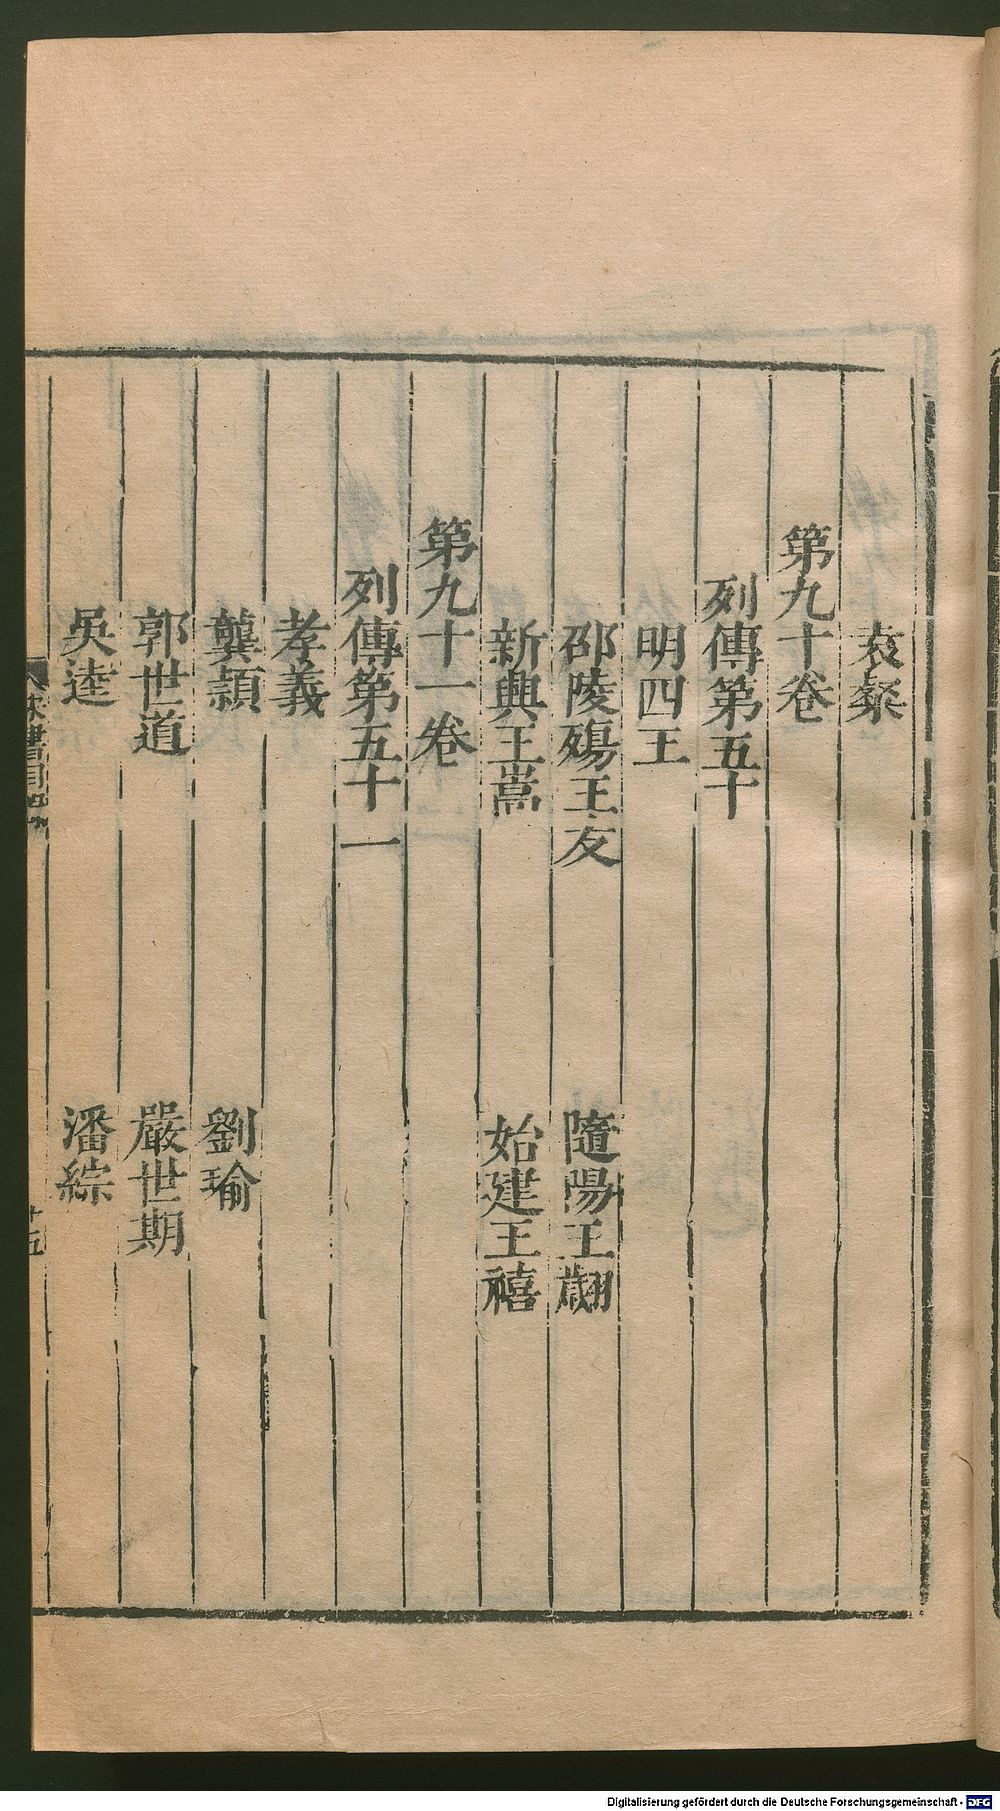 袁粲
第九十卷
列傳第五十
明四王
邵陵殤王友　隨陽王翽
新興王嵩　始建王禧
第九十一卷
列傳第五十一
孝義
龔穎　劉瑜
郭世道　嚴世期
吳逵　潘綜
宋書目
十五
Digitalisierung gefördert durch die Deutsche Forschungsgemeinschaft - DFG